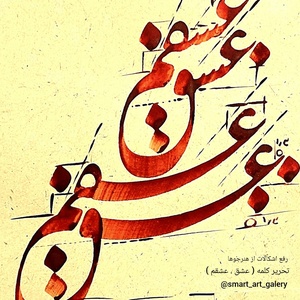 عشقم
عشق
عشقم
عشق
رفع اشکالات از هنرجوها
تحریر کلمه ( عشق ، عشقم )
@smart_art_galery